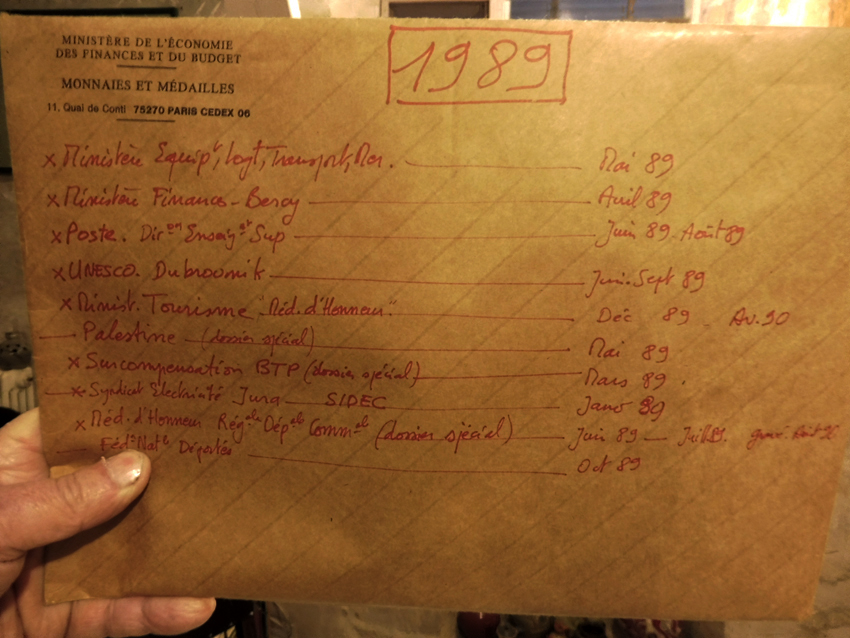 MINISTÈRE DE L'ÉCONOMIE
DES FINANCES ET DU BUDGET
MONNAIES ET MÉDAILLES
11, Quai de Conti 75270 PARIS CEDEX 06
1989
x Ministère Equipt, Logt, Transport, Mer. Mai 89
x Ministère Finances - Bercy Avril 89
x Poste. Dir on Enseigt Sup Juin 89 - Août 89
x UNESCO. Dubrovnik Juin. Sept 89
x Minist. Tourisme "Méd. d'Honneur" Déc 89 - Av. 90
Palestine (dossier spécial) Mai 89
x Surcompensation BTP (dossier spécial) Mars 89.
x Syndicat Electricité Jura SIDEC Janv 89
x Méd. d'Honneur Régale Dépale Commale (dossier spécial) Juin 89 — Juil 89. gravé Août
Fédon Natle Déportés Oct 89